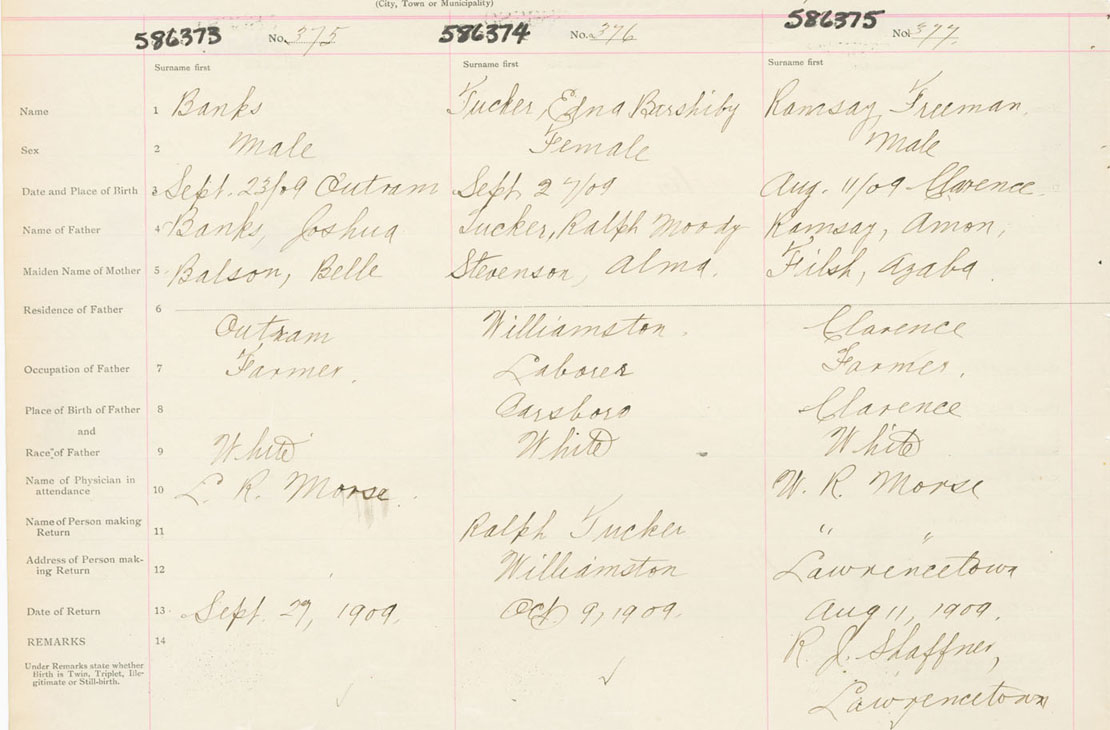 (City, Town or Municipality)
586373 No. 375 586374 No. 376 586375 No. 377
Surname first Surname first Surname first
Name 1 Banks Tucker, Edna Ramsay, Freeman.
Sex 2 Male Female Male
Date and Place of Birth 3 Sept. 23/09 Outram Sept 27/09 Aug. 11/09 Clarence.
Name of Father 4 Banks, Joshua Tucker, Ralph Moody Ramsay, Amon,
Maiden Name of Mother 5 Balson, Belle Stevenson, Alma.
Residence of Father 6
Outram Williamston. Clarence
Occupation of Father 7 Farmer. Laborer Farmer.
Place of Birth of Father 8 Clarence
and
Race of Father 9 White White White
Name of Physician in
attendance 10 L. R. Morse. W. R. Morse
Name of Person making
Return 11 Ralph Tucker " "
Address of Person mak-
ing Return 12 Williamston Lawrencetown
Date of Return 13 Sept. 29, 1909. Oct 9, 1909. Aug 11, 1909.
REMARKS 14 R J. Shaffner,
Under Remarks state whether
Birth is Twin, Triplet, Ille-
gitimate or Still-birth.
Lawrencetown